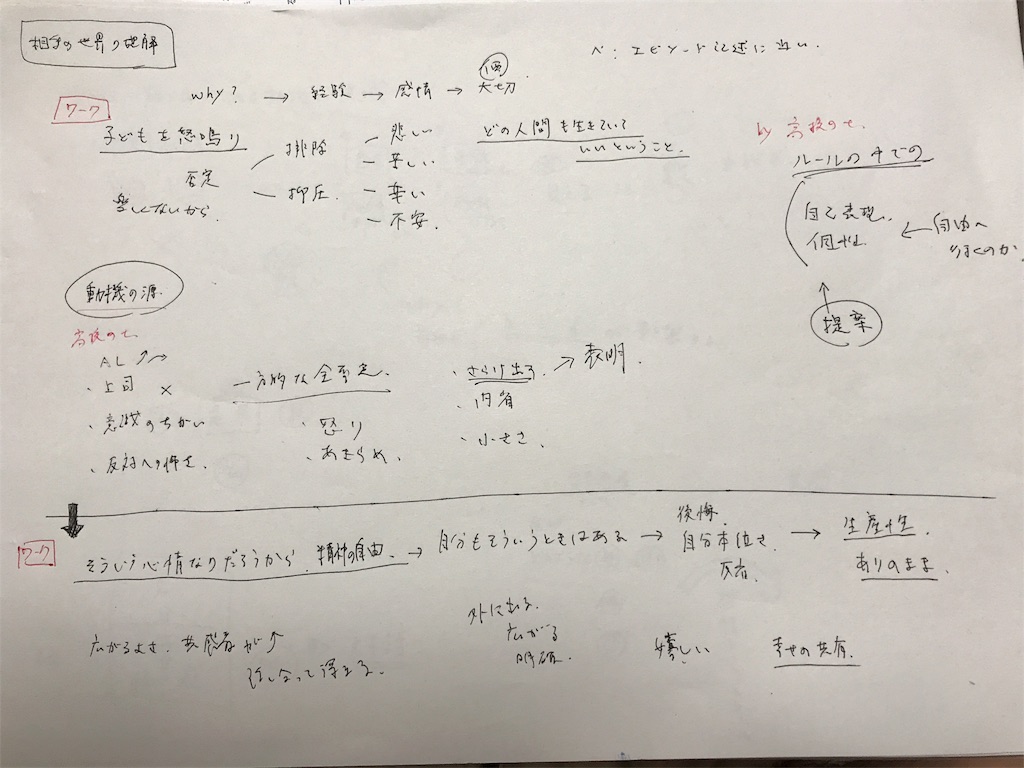 相手の世界の理解
ペ:エピソード記述に近い.
why? → 経験 → 感情 → 大切
価
ワーク
子どもを怒鳴り
否定
楽しくないから.
排除
抑圧.
悲しい
苦しい
辛い
不安.
どの人間も生きていて
いいということ.
by 高校の
ルールの中での
自己表現.
個性.
← 自由へ
行くのか
提案
動機の源.
高校の
AL
・上司 ×
・意識のちがい
・反対への怖さ.
一方的な全否定.
・怒り
・あきらめ.
・さらけ出る → 表明.
・内省
・小ささ.
ワーク
そういう心情なのだろうから.精神の自由. → 自分もそういうときはある → 自分本位さ. → 生産性.
後悔.
反省.
ありのまま.
広がるよさ.共感者が↑
強し合って深まる.
外に出る.
広がる
明確.
嬉しい
幸せの共有.